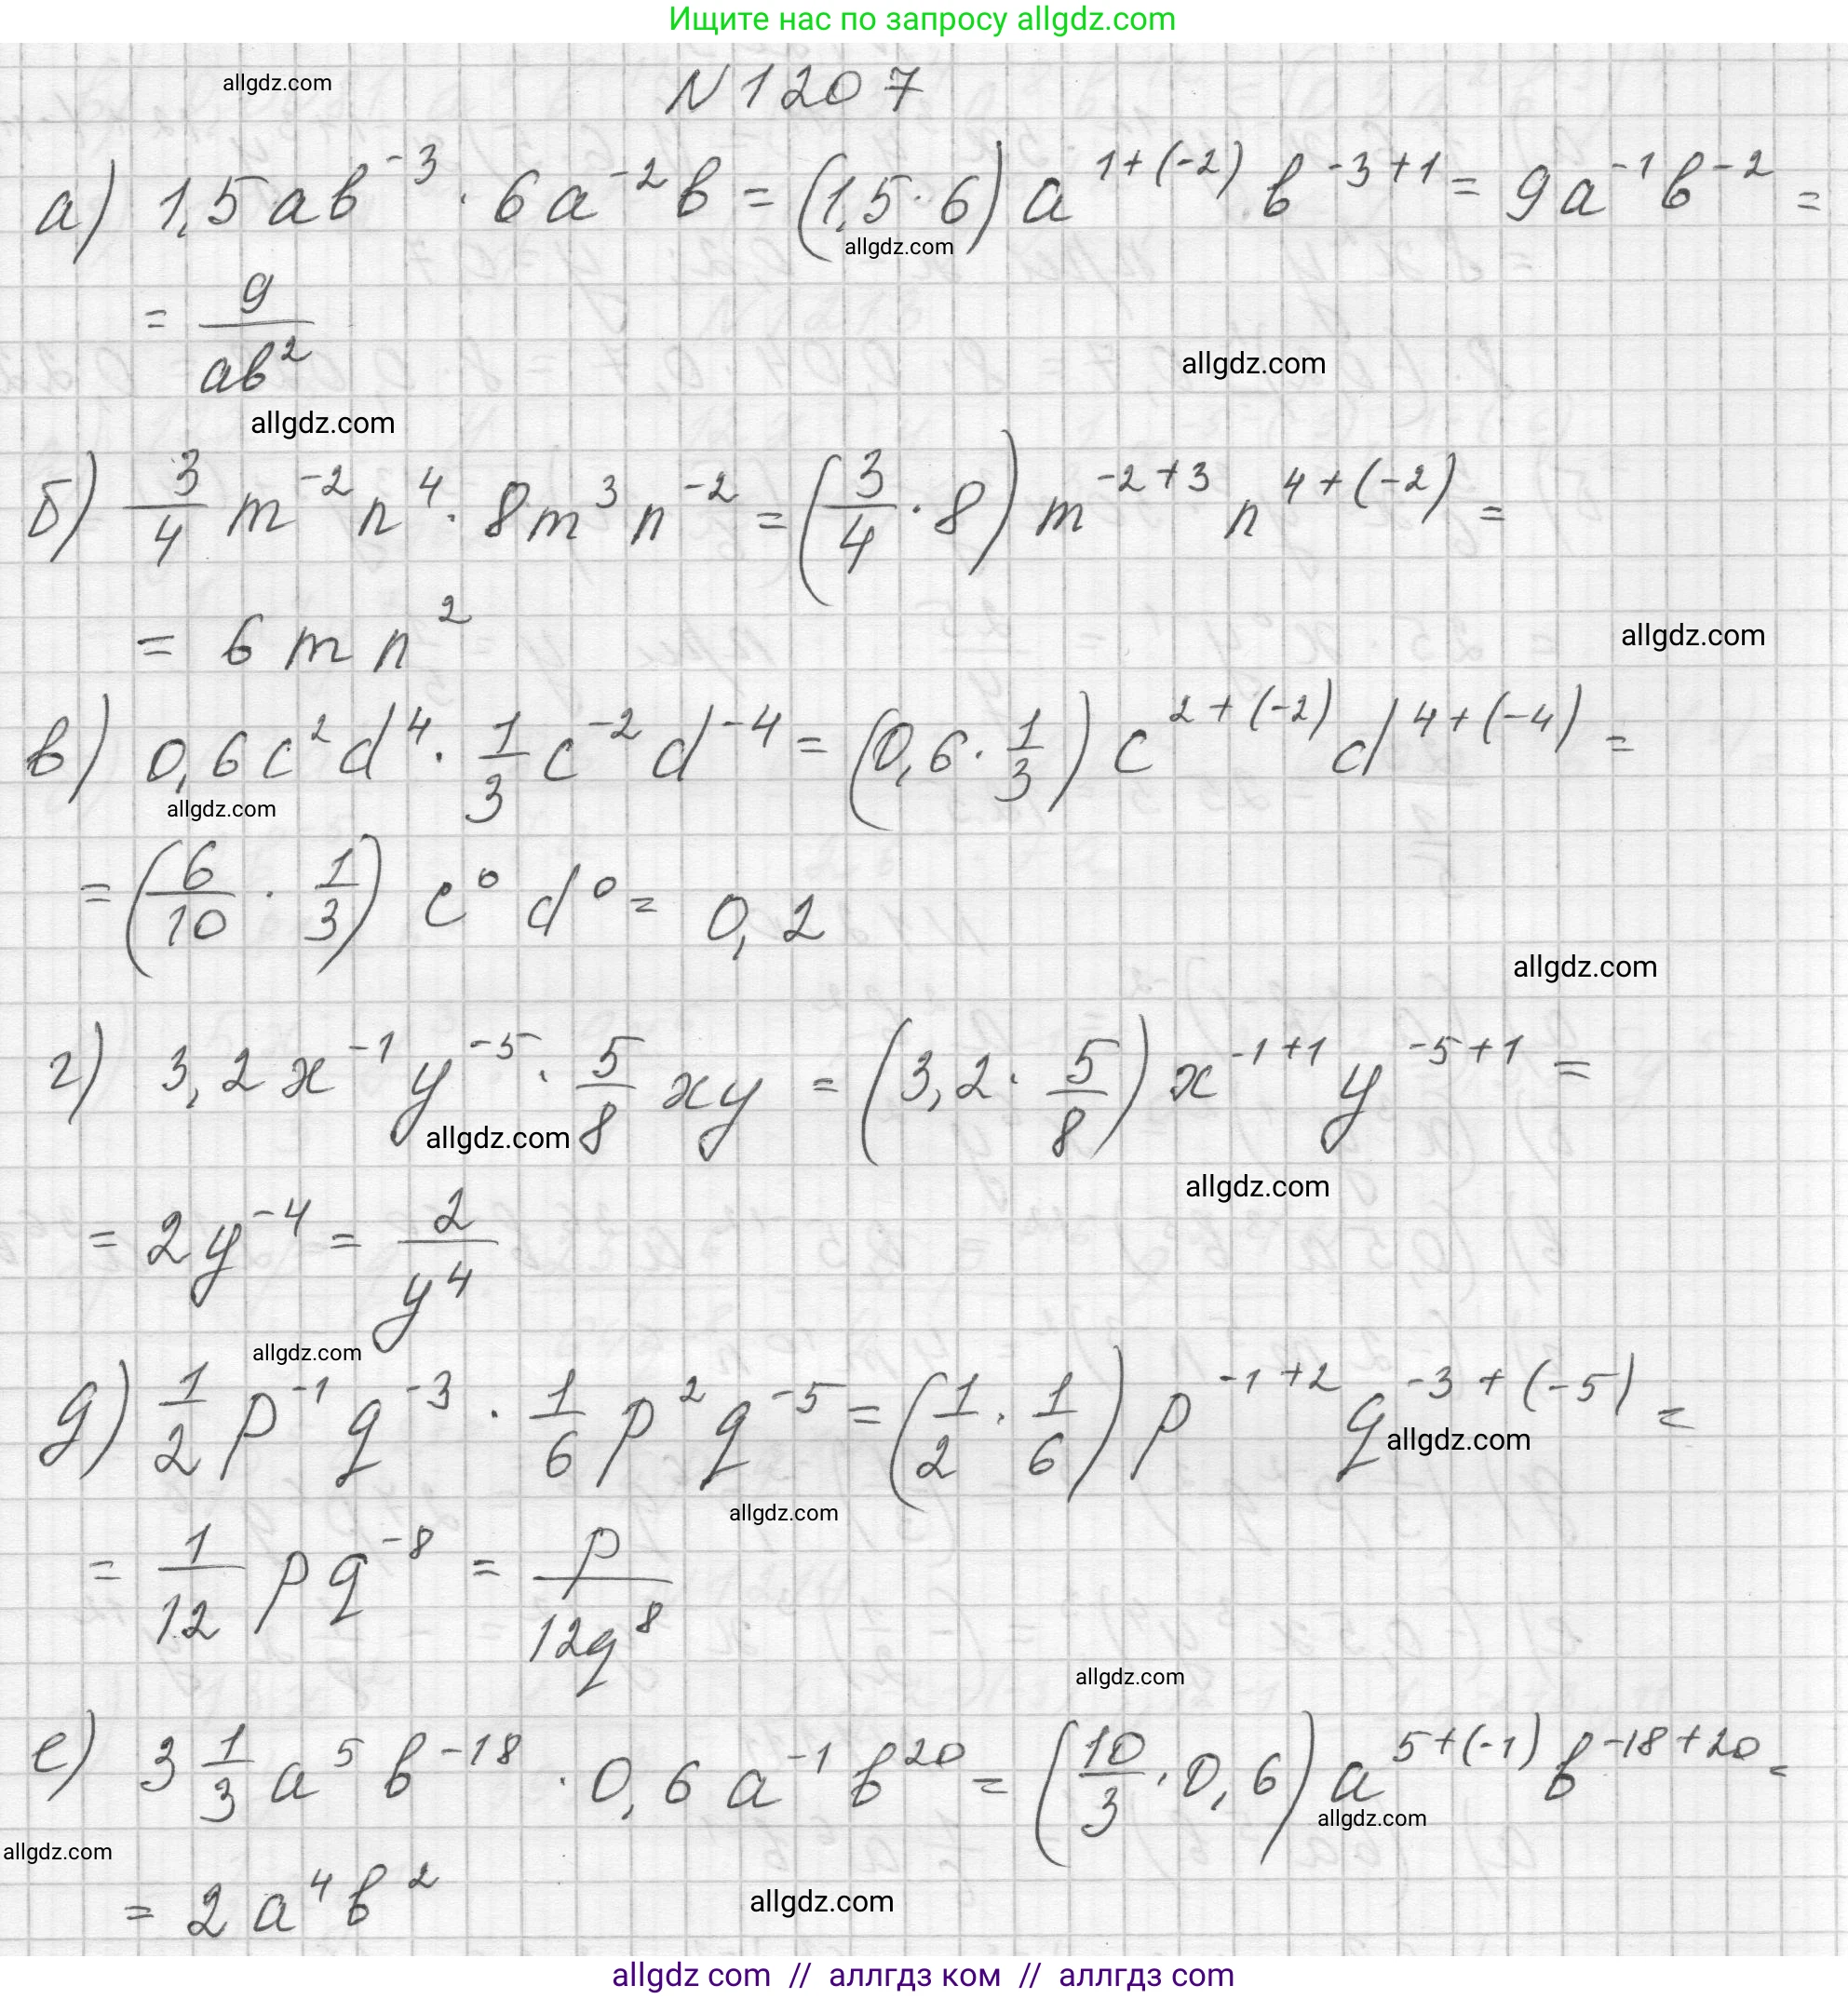 Ищите нас по запросу allgdz.com
allgdz.com
N 1207
а) 1,5ab⁻³ · 6a⁻²b = (1,5 · 6) a¹⁺⁽⁻²⁾ b⁻³⁺¹ = 9a⁻¹b⁻² =
allgdz.com
= 9/(ab²)
allgdz.com
allgdz.com
б) 3/4 m⁻²n⁴ · 8m³n⁻² = (3/4 · 8) m⁻²⁺³ n⁴⁺⁽⁻²⁾ =
= 6mn²
allgdz.com
в) 0,6c²d⁴ · 1/3 c⁻²d⁻⁴ = (0,6 · 1/3) c²⁺⁽⁻²⁾ d⁴⁺⁽⁻⁴⁾ =
allgdz.com
= (6/10 · 1/3) c⁰ d⁰ = 0,2
allgdz.com
г) 3,2x⁻¹y⁻⁵ · 5/8 xy = (3,2 · 5/8) x⁻¹⁺¹ y⁻⁵⁺¹ =
allgdz.com
allgdz.com
= 2y⁻⁴ = 2/y⁴
allgdz.com
д) 1/2 p⁻¹q⁻³ · 1/6 p²q⁻⁵ = (1/2 · 1/6) p⁻¹⁺² q⁻³⁺⁽⁻⁵⁾ =
allgdz.com
allgdz.com
= 1/12 pq⁻⁸ = p/(12q⁸)
allgdz.com
е) 3 1/3 a⁵b⁻¹⁸ · 0,6a⁻¹b²⁰ = (10/3 · 0,6) a⁵⁺⁽⁻¹⁾ b⁻¹⁸⁺²⁰ =
allgdz.com
allgdz.com
= 2a⁴b²
allgdz.com
allgdz com // аллгдз ком // аллгдз com